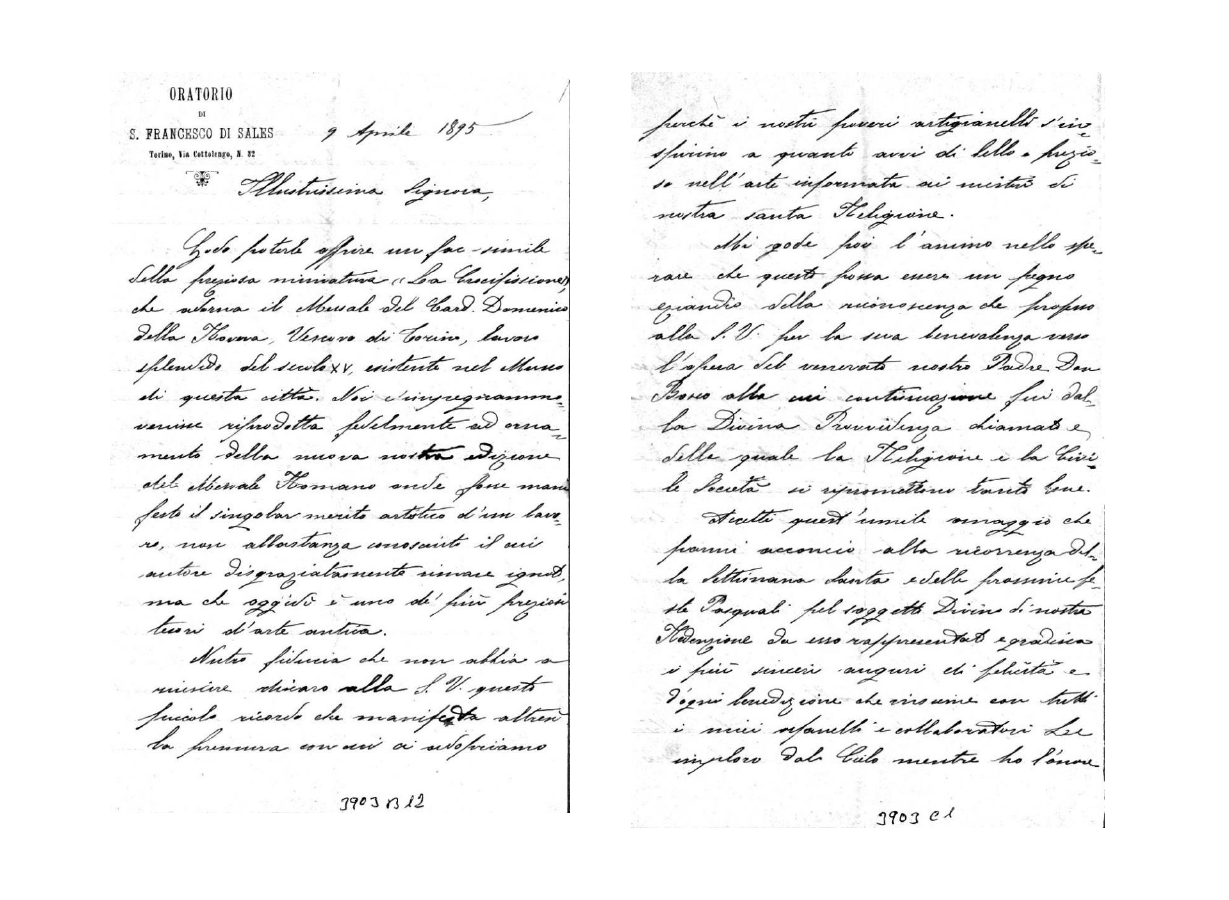 ORATORIO
DI
S. FRANCESCO DI SALES
Torino, Via Cottolengo, N. 32
9 Aprile 1895
Illustrissima Signora,
Godo poterle offrire un fac-simile
della preziosa miniatura "La Crocifissione"
che adorna il Messale del Card. Domenico
della Rovere, Vescovo di Torino, lavoro
splendido del secolo XV, esistente nel Museo
di questa città. Noi c'ingegnammo
venisse riprodotta fedelmente ad orna-
mento della nuova nostra edizione
del Messale Romano onde fosse mani
festo il singolar merito artistico d'un lavo-
ro, non abbastanza conosciuto il cui
autore disgraziatamente rimase ignoto,
ma che oggidì è uno de' più preziosi
tesori d'arte antica.
Nutro fiducia che non abbia a
riuscire discaro alla S. V. questo
piccolo ricordo che manifesta altresì
la premura con cui ci adopriamo
3903 B 12
perchè i nostri poveri artigianelli s'in-
spirino a quanto avvi di bello e prezio-
so nell'arte informata ai misteri di
nostra santa Religione.
Mi gode poi l'animo nello spe-
rare che questo possa essere un pegno
eziandio della riconoscenza che professo
alla S. V. per la sua benevolenza verso
l'opera del venerato nostro Padre Don
Bosco alla cui continuazione fui dal-
la Divina Provvidenza chiamato e
dalla quale la Religione e la Civi-
le Società si ripromettono tanto bene.
Accetti quest'umile omaggio che
parmi acconcio alla ricorrenza del-
la Settimana Santa e delle prossime fe-
ste Pasquali pel soggetto Divino di nostra
Redenzione da esso rappresentato e gradisca
i più sinceri auguri di felicità e
d'ogni benedizione che insieme con tutti
i miei orfanelli e collaboratori Le
imploro dal Cielo mentre ho l'onore
3903 C 1